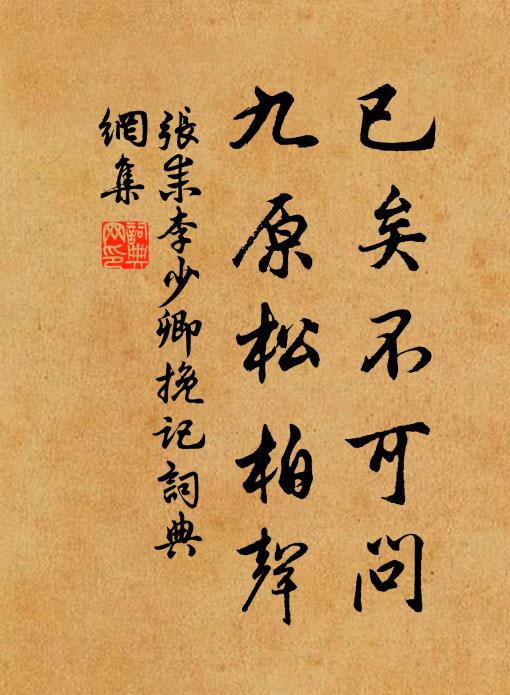 已矣不可問
九原松柏聲
張耒李少卿挽記詞典
網集
詞典網印